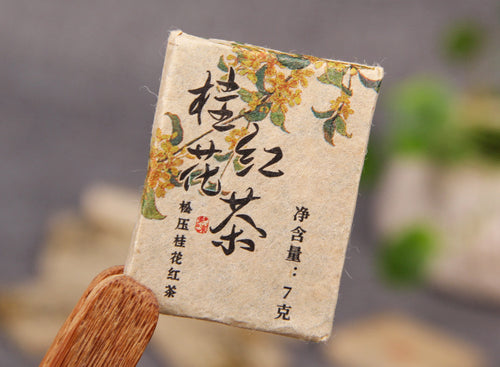 桂花
红茶
松压桂花红茶
净含量：7克